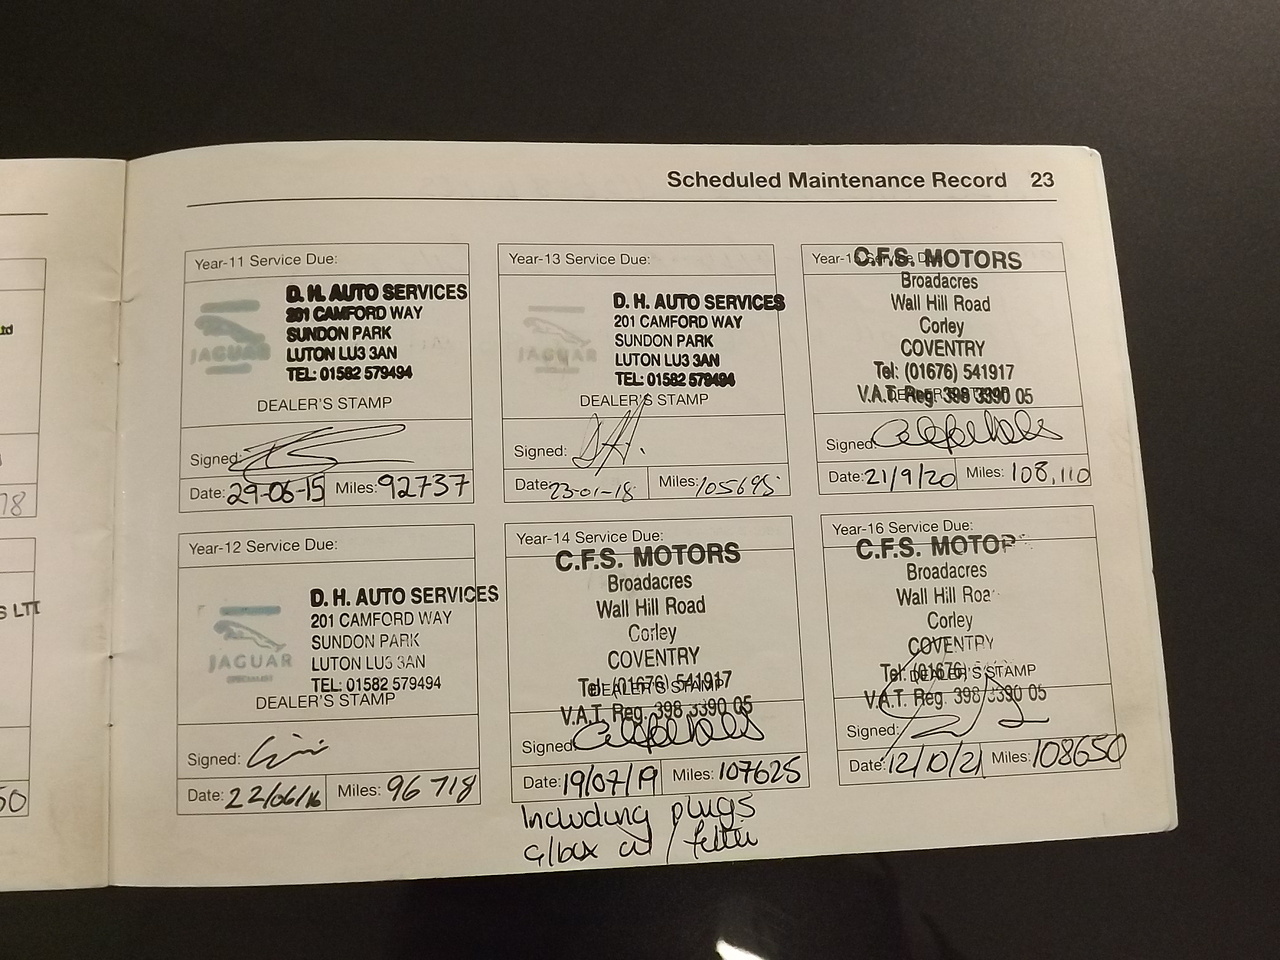 Scheduled Maintenance Record 23
Year-11 Service Due:
JAGUAR
D. H. AUTO SERVICES
201 CAMFORD WAY
SUNDON PARK
LUTON LU3 3AN
TEL: 01582 579494
DEALER'S STAMP
Signed:
Date: 29-06-15 Miles: 92737
Year-12 Service Due:
JAGUAR
D. H. AUTO SERVICES
201 CAMFORD WAY
SUNDON PARK
LUTON LU3 3AN
TEL: 01582 579494
DEALER'S STAMP
Signed:
Date: 22/06/16 Miles: 96 718
Year-13 Service Due:
JAGUAR
D. H. AUTO SERVICES
201 CAMFORD WAY
SUNDON PARK
LUTON LU3 3AN
TEL: 01582 579494
DEALER'S STAMP
Signed: DH.
Date: 23-01-18 Miles: 105695
Year-14 Service Due:
C.F.S. MOTORS
Broadacres
Wall Hill Road
Corley
COVENTRY
Tel: (01676) 541917
DEALER'S STAMP
V.A.T. Reg. 398 3390 05
Signed:
Date: 19/07/19 Miles: 107625
Including plugs
G/box oil / filter
Year-15 Service Due:
C.F.S. MOTORS
Broadacres
Wall Hill Road
Corley
COVENTRY
Tel: (01676) 541917
V.A.T. Reg. 398 3390 05
DEALER'S STAMP
Signed:
Date: 21/9/20 Miles: 108,110
Year-16 Service Due:
C.F.S. MOTOR
Broadacres
Wall Hill Roa
Corley
COVENTRY
Tel: (01676)
DEALER'S STAMP
V.A.T. Reg. 398 3390 05
Signed:
Date: 12/10/21 Miles: 108650